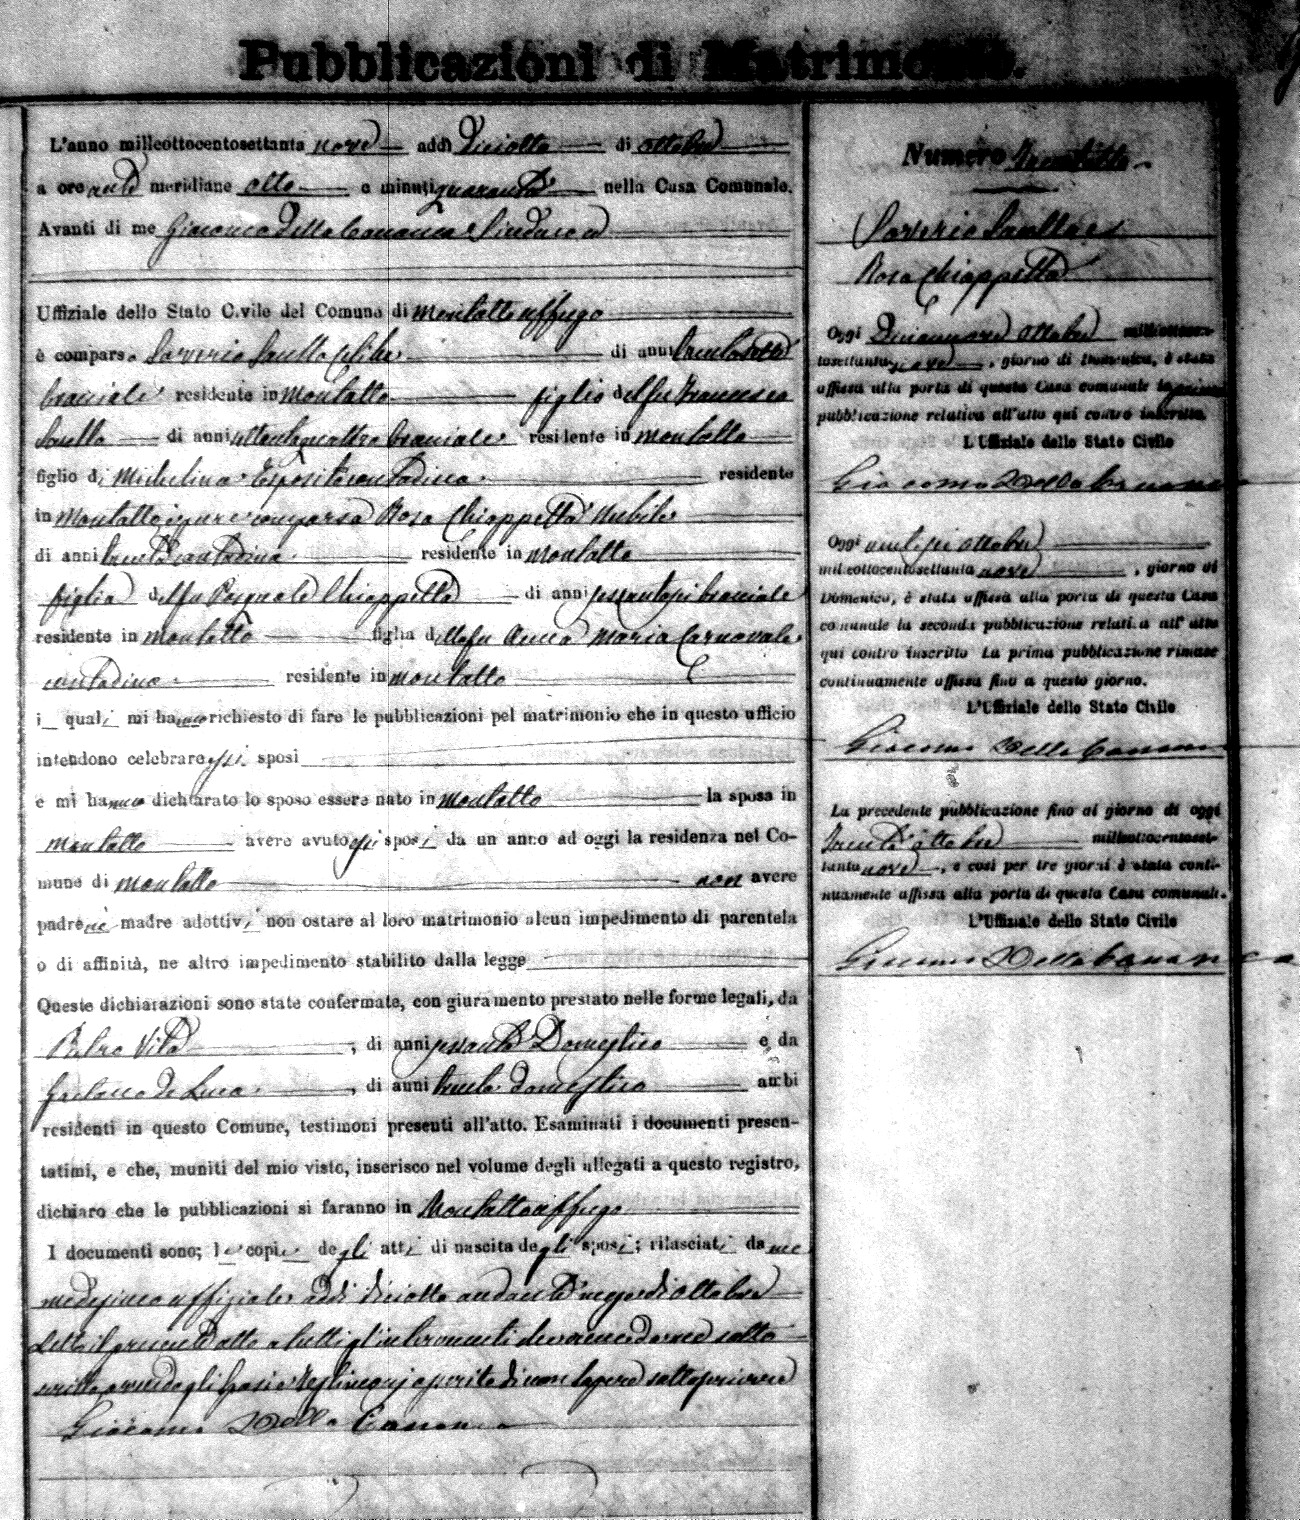 Pubblicazioni di Matrimonio.
L'anno milleottocentosettanta nove addì diciotto di ottobre
a ore anti meridiane otto e minuti quaranta nella Casa Comunale.
Avanti di me Giacomo Della Cananea Sindaco
Uffiziale dello Stato Civile del Comune di Montalto Uffugo
è comparso Saverio Saullo celibe di anni
bracciale residente in Montalto figlio del fu Francesco
Saullo di anni ottantaquattro bracciale residente in Montalto
figlio di Michelina Esposito contadina residente
in Montalto e pure comparsa Rosa Chiappetta Nubile
di anni trenta contadina residente in Montalto
figlia del fu Pasquale Chiappetta di anni sessantasei bracciale
residente in Montalto figlia della fu Anna Maria Carnovale
contadina residente in Montalto
i quali mi hanno richiesto di fare le pubblicazioni pel matrimonio che in questo ufficio
intendono celebrare essi sposi
e mi hanno dichiarato lo sposo essere nato in Montalto la sposa in
Montalto avere avuto essi sposi da un anno ad oggi la residenza nel Co-
mune di Montalto non avere
padre nè madre adottivi non ostare al loro matrimonio alcun impedimento di parentela
o di affinità, ne altro impedimento stabilito dalla legge
Queste dichiarazioni sono state confermate, con giuramento prestato nelle forme legali, da
Pietro Vita, di anni sessanta Domestico e da
Gaetano De Luca, di anni trenta domestico ambi
residenti in questo Comune, testimoni presenti all'atto. Esaminati i documenti presen-
tatimi, e che, muniti del mio visto, inserisco nel volume degli allegati a questo registro,
dichiaro che le pubblicazioni si faranno in Montalto Uffugo
I documenti sono; le copie degli atti di nascita degli sposi; rilasciati da me
medesimo uffiziale addì diciotto andante mese di Ottobre
Letto il presente atto a tutti gl'intervenuti
sapere sottoscrivere
Giacomo Della Cananea
Numero Trentotto
Saverio Saullo e
Rosa Chiappetta
Oggi Diciannove Ottobre milleottocen-
tosettanta nove, giorno di Domenica, è stata
affissa alla porta di questa Casa comunale la prima
pubblicazione relativa all'atto qui contro inscritto.
L'Uffiziale dello Stato Civile
Giacomo Della Cananea
Oggi ventisei ottobre
milleottocentosettanta nove, giorno di
Domenica, è stata affissa alla porta di questa Casa
comunale la seconda pubblicazione relativa all' atto
qui contro inscritto La prima pubblicazione rimase
continuamente affissa fino a questo giorno.
L'Uffiziale dello Stato Civile
Giacomo Della Cananea
La precedente pubblicazione fino al giorno di oggi
Trenta ottobre milleottocentoset-
tanta nove, e così per tre giorni è stata conti-
nuamente affissa alla porta di questa Casa comunale.
L'Uffiziale dello Stato Civile
Giacomo Della Cananea